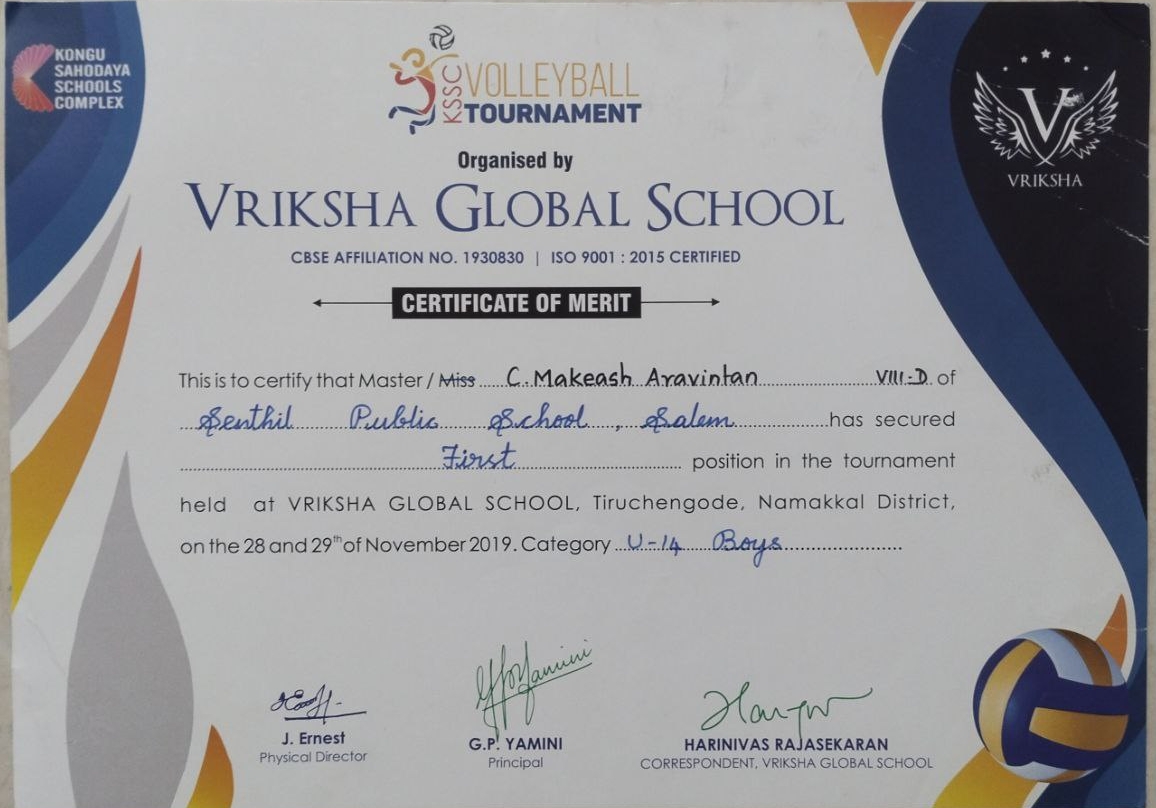 KONGU
SAHODAYA
SCHOOLS
COMPLEX
KSSC VOLLEYBALL
TOURNAMENT
V
VRIKSHA
Organised by
VRIKSHA GLOBAL SCHOOL
CBSE AFFILIATION NO. 1930830 | ISO 9001 : 2015 CERTIFIED
CERTIFICATE OF MERIT
This is to certify that Master / Miss C. Makeash Aravintan VIII-D of
Senthil Public School, Salem has secured
First position in the tournament
held at VRIKSHA GLOBAL SCHOOL, Tiruchengode, Namakkal District,
on the 28 and 29th of November 2019. Category U-14 Boys
J. Ernest
Physical Director
G.P. YAMINI
Principal
HARINIVAS RAJASEKARAN
CORRESPONDENT, VRIKSHA GLOBAL SCHOOL